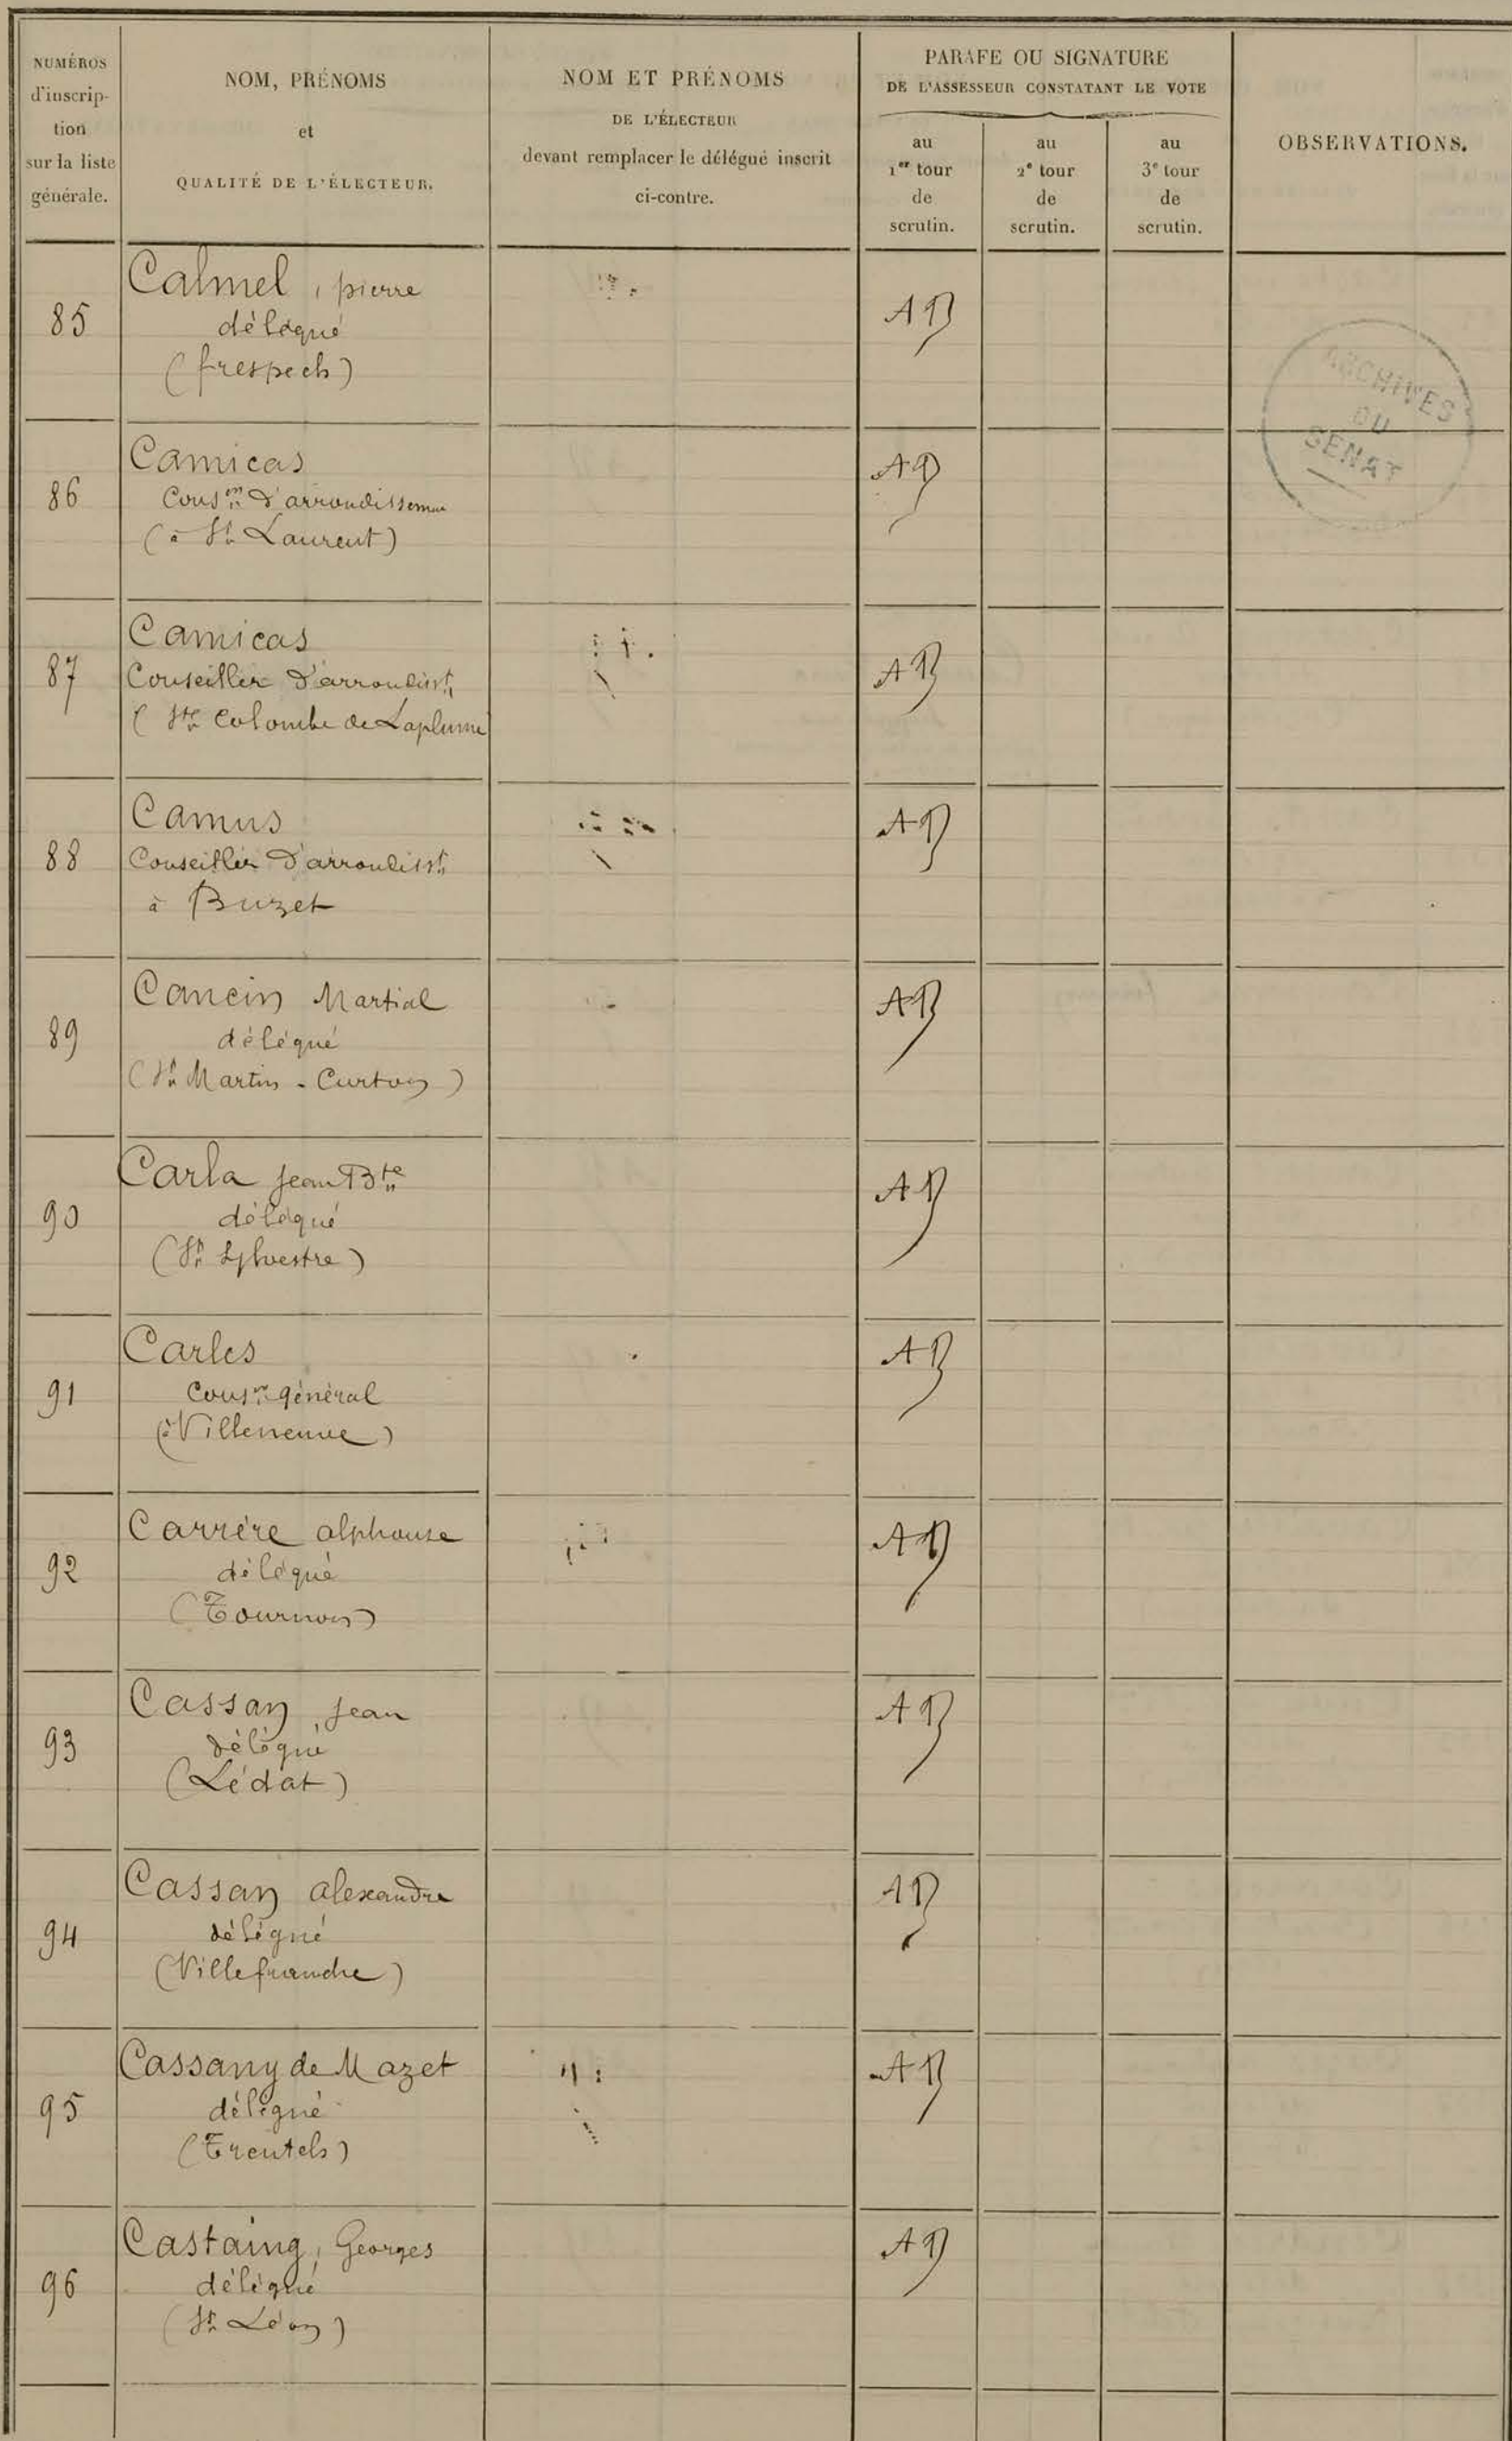 NUMÉROS
d'inscrip-
tion
sur la liste
générale.
NOM, PRÉNOMS
et
QUALITÉ DE L'ÉLECTEUR.
NOM ET PRÉNOMS
DE L'ÉLECTEUR
devant remplacer le délégué inscrit
ci-contre.
PARAFE OU SIGNATURE
DE L'ASSESSEUR CONSTATANT LE VOTE
au
1er tour
de
scrutin.
au
2e tour
de
scrutin.
au
3e tour
de
scrutin.
OBSERVATIONS.
ARCHIVES
DU
SENAT
85
Calmel, pierre
délégué
(frespech)
AB
86
Camicas
Conser d'arrondissement
(à St Laurent)
AB
87
Camicas
Conseiller d'arrondisst
(Ste Colombe de Laplume
AB
88
Camus
Conseiller d'arrondisst
à Buzet
AB
89
Cancin Martial
délégué
(St Martin-Curton)
AB
90
Carla Jean Bte
délégué
(St Sylvestre)
AB
91
Carles
Consr général
(à Villeneuve)
AB
92
Carrère alphonse
délégué
(Tournon)
AB
93
Cassan Jean
délégué
(Lédat)
AB
94
Cassan alexandre
délégué
(Villefranche)
AB
95
Cassany de Mazet
délégué
(Trentels)
AB
96
Castaing, Georges
délégué
(St Léon)
AB